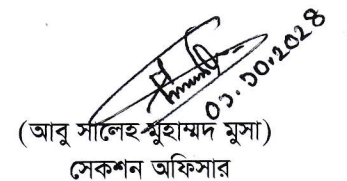 ০১.১০.২০২৪
(আবু সালেহ মুহাম্মদ মুসা)
সেকশন অফিসার